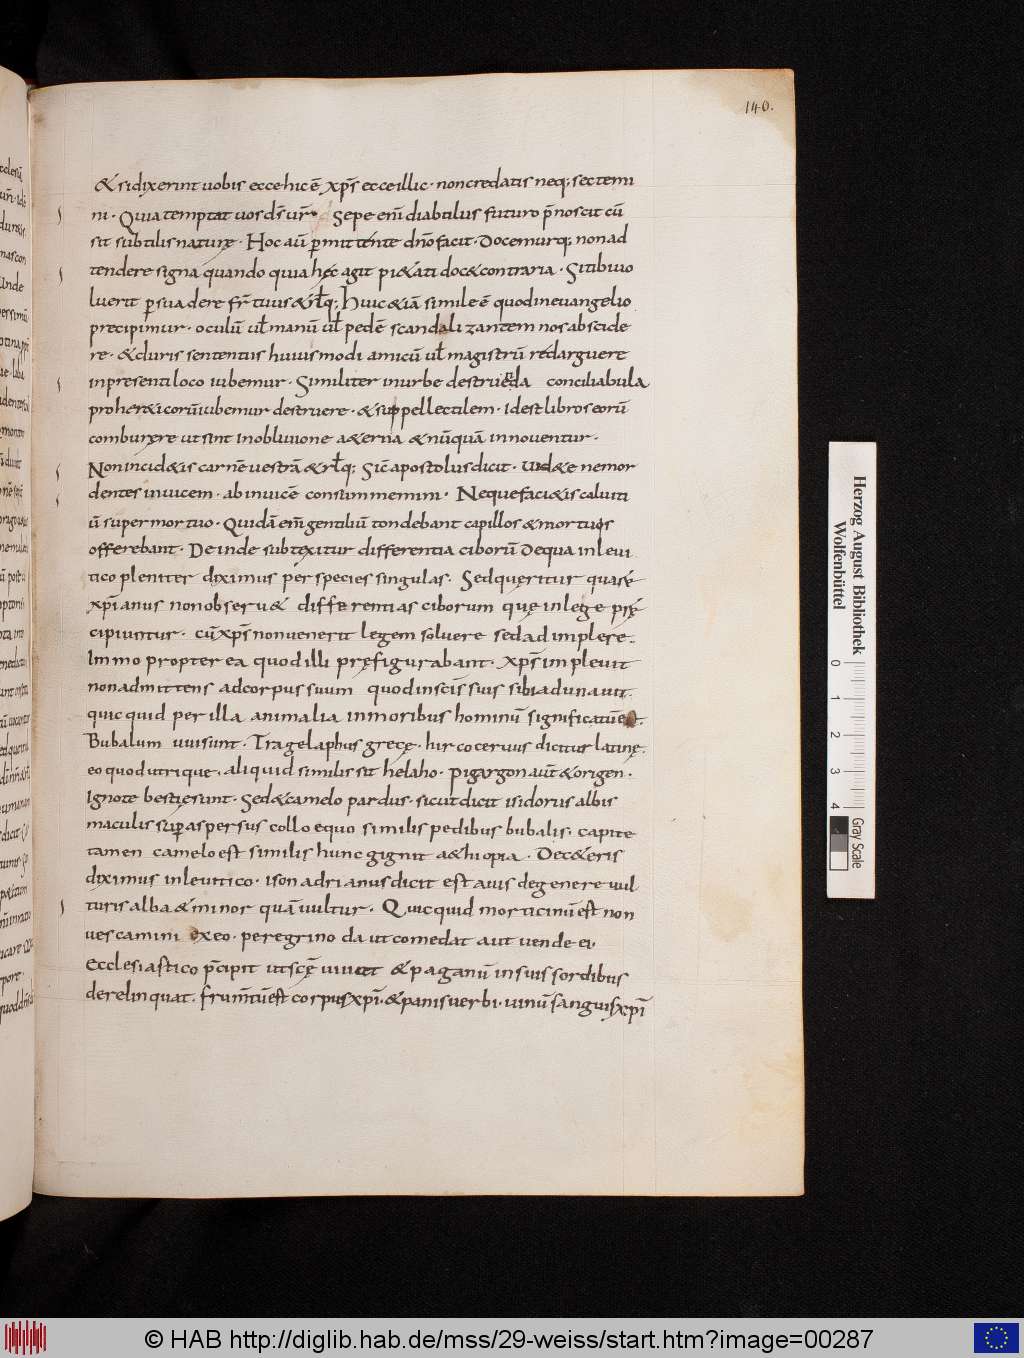 140.
& si dixerint uobis ecce hic ē xp̄s ecce illic· non credatis neq; sectemi
ni· Quia temptat uos d̄s ur̄· Sepe eni̅ diabulus futuro p̄noscit cū
sit subtilis naturę· Hoc aū permittente dn̄o facit· Docemurq; non ad
tendere signa quando quia hęc agit pi&ati doc& contraria· Si tibi uo
luerit persuadere fr̄ tuus & rl̄q; huic & iā simile ē quod in euangelio
precipimur· oculū ul̄ manū ul̄ pedē scandalizantem nos abscide
re· & duris sententiis huiusmodi amicū ul̄ magistrū redarguere
in presenti loco iubemur· Similiter in urbe destruenda conciliabula
pro her&icorū iubemur destruere· & suppellectilem· Id est libros eorū
comburere ut sint in obliuione a&erna & nūquā innouentur·
Non incid&is carnē uestrā & rl̄q; Sic̄ apostolus dicit· Uid&e ne mor
dentes inuicem· ab inuicē consummemini· Neque faci&is caluiti
ū super mortuo· Quidā eni̅ gentiliū tondebant capillos & mortuis
offerebant· Deinde subtexitur differentia ciborū de qua in leui
tico pleniter diximus per species singulas· Sed quęritur quare
xp̄ianus non obseru& differentias ciborum quę in lege prę
cipiuntur· cū xp̄s non uenerit legem soluere sed adimplere·
Immo propterea quod illi pręfigurabant· xp̄s impleuit
non admittens ad corpus suum quod in sc̄is suis sibi adunauit·
quicquid per illa animalia in moribus hominū significatū est·
Bubalum uiui sunt· Tragelaphus grecę· hircoceruus dicitur latinę·
eo quod utrique, aliquid similis sit helaho· Pigargon aut̄ & origen·
Ignote bestię sunt· Sed & camelopardus· sicut dicit isidorus albis
maculis superaspersus collo equo similis pedibus bubalis· capite
tamen camelo est similis hunc gignit a&hiopia· De c&eris
diximus in leuitico· ison adrianus dicit est auis de genere uul
turis alba & minor quā uultur· Quicquid morticinū est non
uescamini ex eo· peregrino da ut comedat aut uende ei·
Ecclesiastico p̄cipit ut scę̄ uiuat & paganū in suis sordibus
derelinquat· frum̄tū est corpus xp̄i· & panis uerbi· uinū sanguis xp̄i
Herzog August Bibliothek
Wolfenbüttel
0 1 2 3 4
Gray Scale
© HAB http://diglib.hab.de/mss/29-weiss/start.htm?image=00287